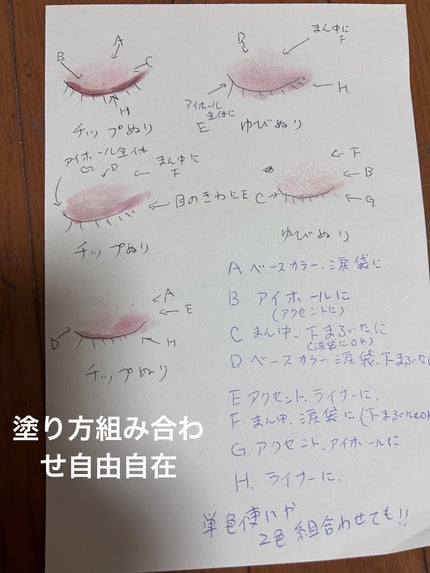 A
B
C
H
チップぬり
D
まん中に
F
H
アイホール
全体に
E
ゆびぬり
アイホール全体
G D
まん中に
F
目のきわにE
チップぬり
F
B
C
G
ゆびぬり
A
E
D
H
チップぬり
A ベースカラー、涙袋に
B アイホールに
(アクセントに)
C まん中、下まぶたに
(涙袋にOK)
D ベースカラー、涙袋、下まぶたに
E アクセント、ライナーに、
F. まん中、涙袋に(下まぶたもOK
G. アクセント、アイホールに
H. ライナーに、
単色使いや
2色組合わせても!!
塗り方組み合わ
せ自由自在